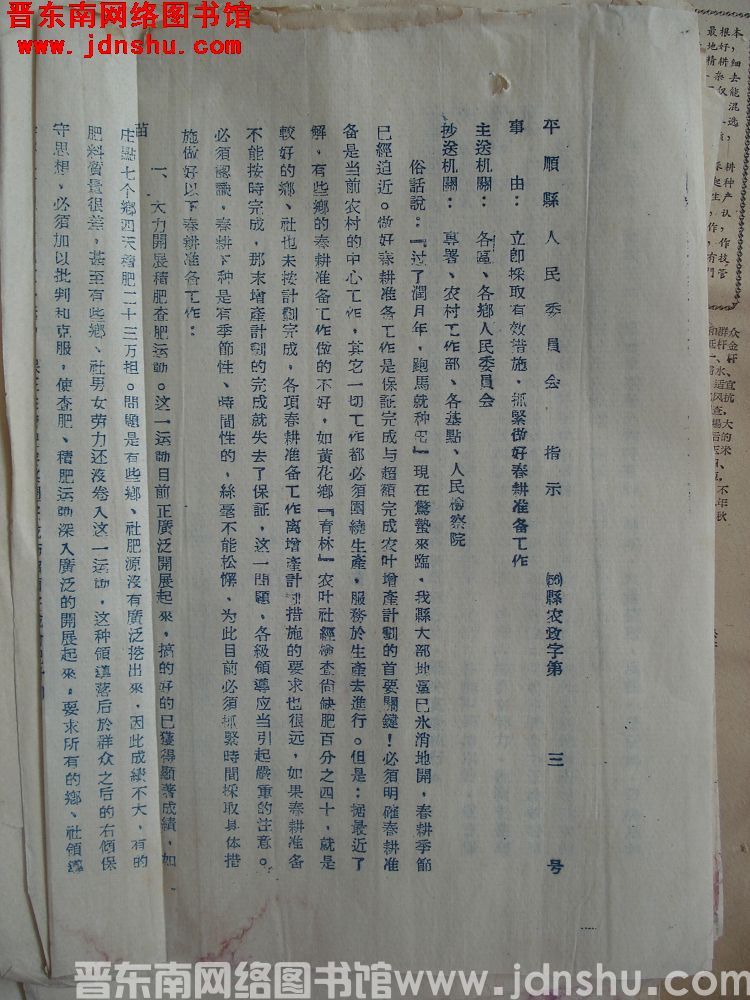 晋东南网络图书馆
www.jdnshu.com
平順縣人民委員会 指示 (56)縣农政字第 三 号
事 由： 立卽採取有效措施，抓緊做好春耕准备工作
主送机關： 各區、各鄉人民委員会
抄送机關： 專署、农村工作部、各基點、人民檢察院
俗話說：『过了潤月年，跑馬就种田』現在驚蟄來臨，我縣大部地區已氷消地開，春耕季節
已經迫近。做好春耕准备工作是保証完成与超額完成农叶增產計劃的首要關鍵！必須明確春耕准
备是当前农村的中心工作，其它一切工作都必須圍繞生產，服務於生產去進行。但是：据最近了
解，有些鄉的春耕准备工作做的不好，如黃花鄉『育林』农叶社經檢查尙缺肥百分之四十，就是
較好的鄉、社也未按計劃完成，各項春耕准备工作离增產計劃措施的要求也很远，如果春耕准备
不能按時完成，那末增產計劃的完成就失去了保証，这一問題，各級领導应当引起嚴重的注意。
必須認識，春耕下种是有季節性、時間性的，絲毫不能松懈，为此目前必須抓緊時間採取具体措
施做好以下春耕准备工作：
一、大力開展積肥查肥运動。这一运動目前正廣泛開展起來，搞的好的已獲得顯著成績，如
苗庄點七个鄉四天積肥二十三万担。問題是有些鄉、社肥源沒有廣泛挖出來，因此成績不大，有的
肥料質量很差，甚至有些鄉、社男女劳力还沒卷入这一运動，这种領導落后於群众之后的右傾保
守思想，必須加以批判和克服，使查肥、積肥运動深入廣泛的開展起來。要求所有的鄉、社領導
晋东南网络图书馆www.jdnshu.com